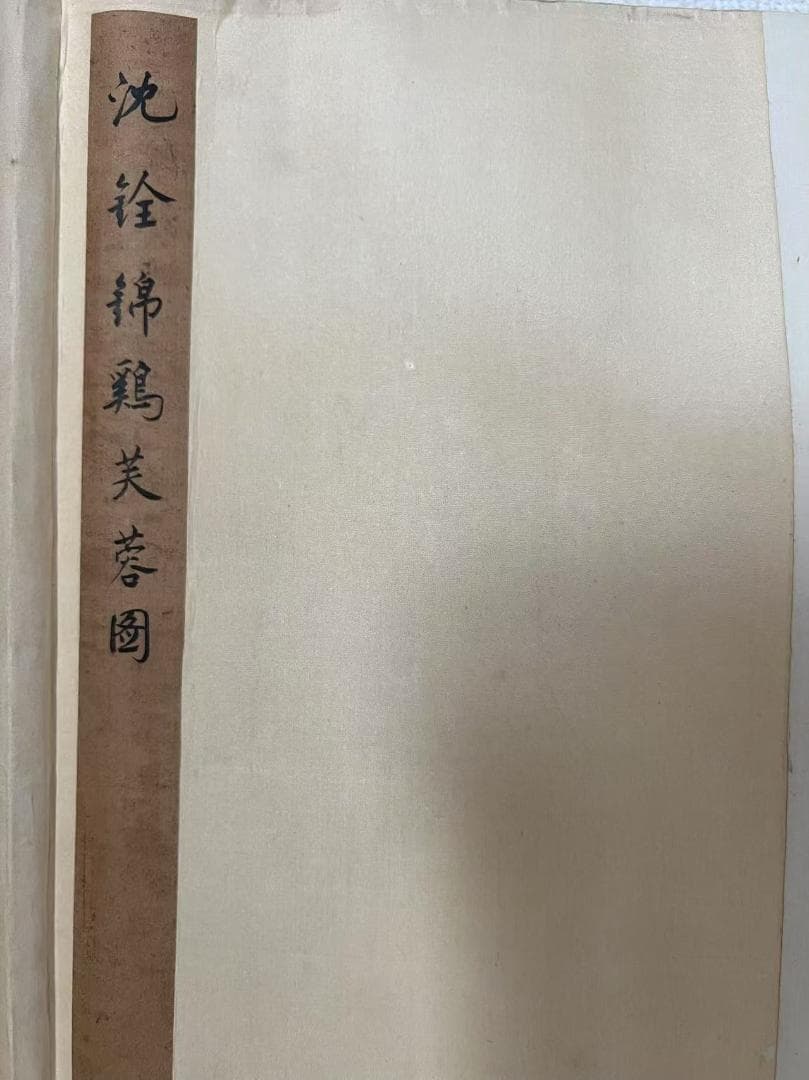 沈銓錦鷄芙蓉图